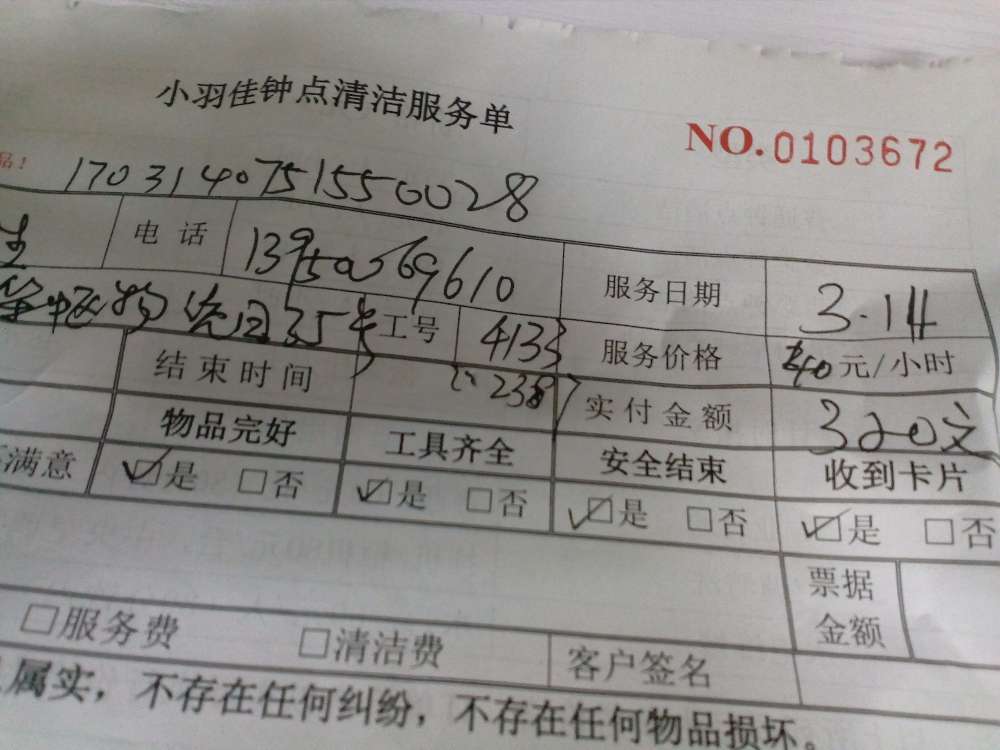 小羽佳钟点清洁服务单
NO.0103672
品!
170314075155500028
生 电话 13950069610 服务日期 3.14
35号 工号 4133 服务价格 40元/小时
结束时间 2387 实付金额 320元
物品完好 工具齐全 安全结束 收到卡片
满意 ☑是 □否 ☑是 □否 ☑是 □否 ☑是 □否
票据
金额
□服务费 □清洁费 客户签名
属实，不存在任何纠纷，不存在任何物品损坏。